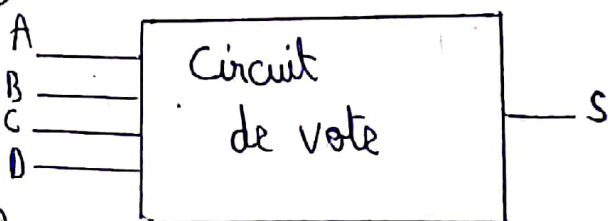 A
B
C
D
Circuit
de vote
S